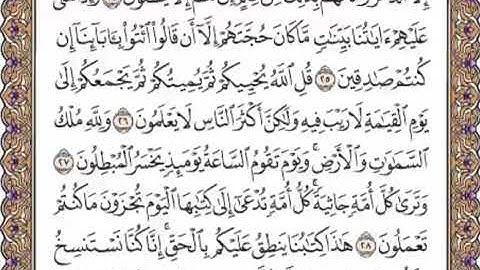 عَلَيْهِمْ ءَايَٰتُنَا بَيِّنَٰتٍ مَّا كَانَ حُجَّتَهُمْ إِلَّآ أَن قَالُوا۟ ٱئْتُوا۟ بِـَٔابَآئِنَآ إِن
كُنتُمْ صَٰدِقِينَ ٢٥ قُلِ ٱللَّهُ يُحْيِيكُمْ ثُمَّ يُمِيتُكُمْ ثُمَّ يَجْمَعُكُمْ إِلَىٰ
يَوْمِ ٱلْقِيَٰمَةِ لَا رَيْبَ فِيهِ وَلَٰكِنَّ أَكْثَرَ ٱلنَّاسِ لَا يَعْلَمُونَ ٢٦ وَلِلَّهِ مُلْكُ
ٱلسَّمَٰوَٰتِ وَٱلْأَرْضِ ۚ وَيَوْمَ تَقُومُ ٱلسَّاعَةُ يَوْمَئِذٍ يَخْسَرُ ٱلْمُبْطِلُونَ ٢٧
وَتَرَىٰ كُلَّ أُمَّةٍ جَاثِيَةً ۚ كُلُّ أُمَّةٍ تُدْعَىٰٓ إِلَىٰ كِتَٰبِهَا ٱلْيَوْمَ تُجْزَوْنَ مَا كُنتُمْ
تَعْمَلُونَ ٢٨ هَٰذَا كِتَٰبُنَا يَنطِقُ عَلَيْكُم بِٱلْحَقِّ ۚ إِنَّا كُنَّا نَسْتَنسِخُ